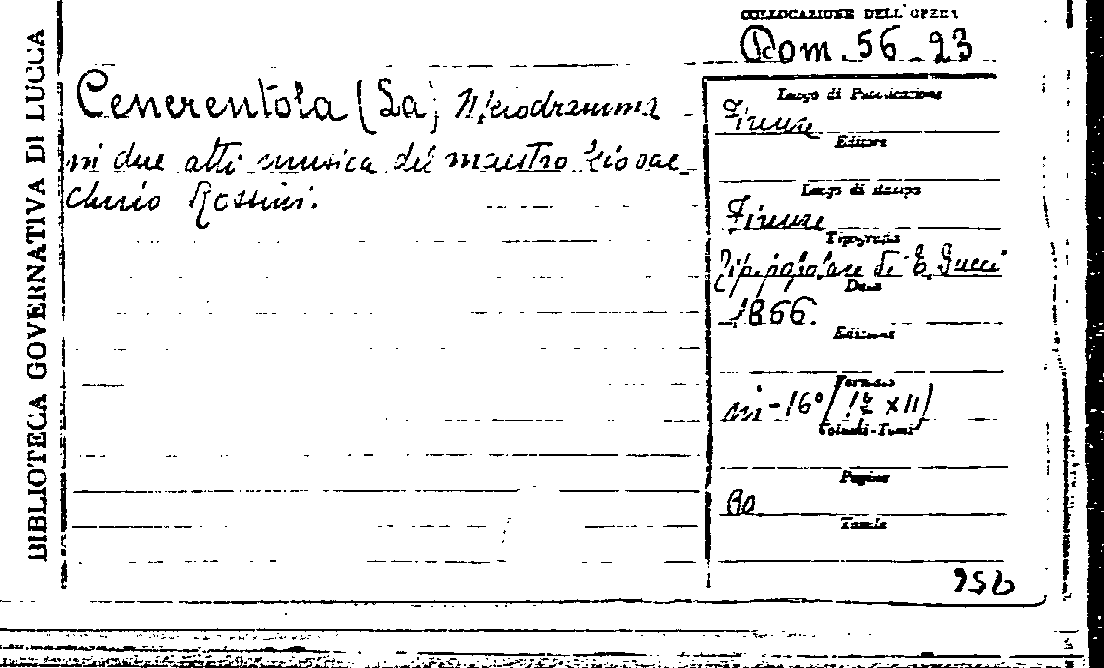 BIBLIOTECA GOVERNATIVA DI LUCCA
COLLOCAZIONE DELL'OPERA
Rom. 56-23
Cenerentola (La) Melodramma
in due atti musica del maestro Gioac-
chino Rossini.
Luogo di Pubblicazione
Firenze
Editore
Luogo di stampa
Firenze
Tipografia
Tip. popolare di E. Ducci
Data
1866.
Edizione
Formato
in-16°
Volumi-Tomi
Pagine
Tavole